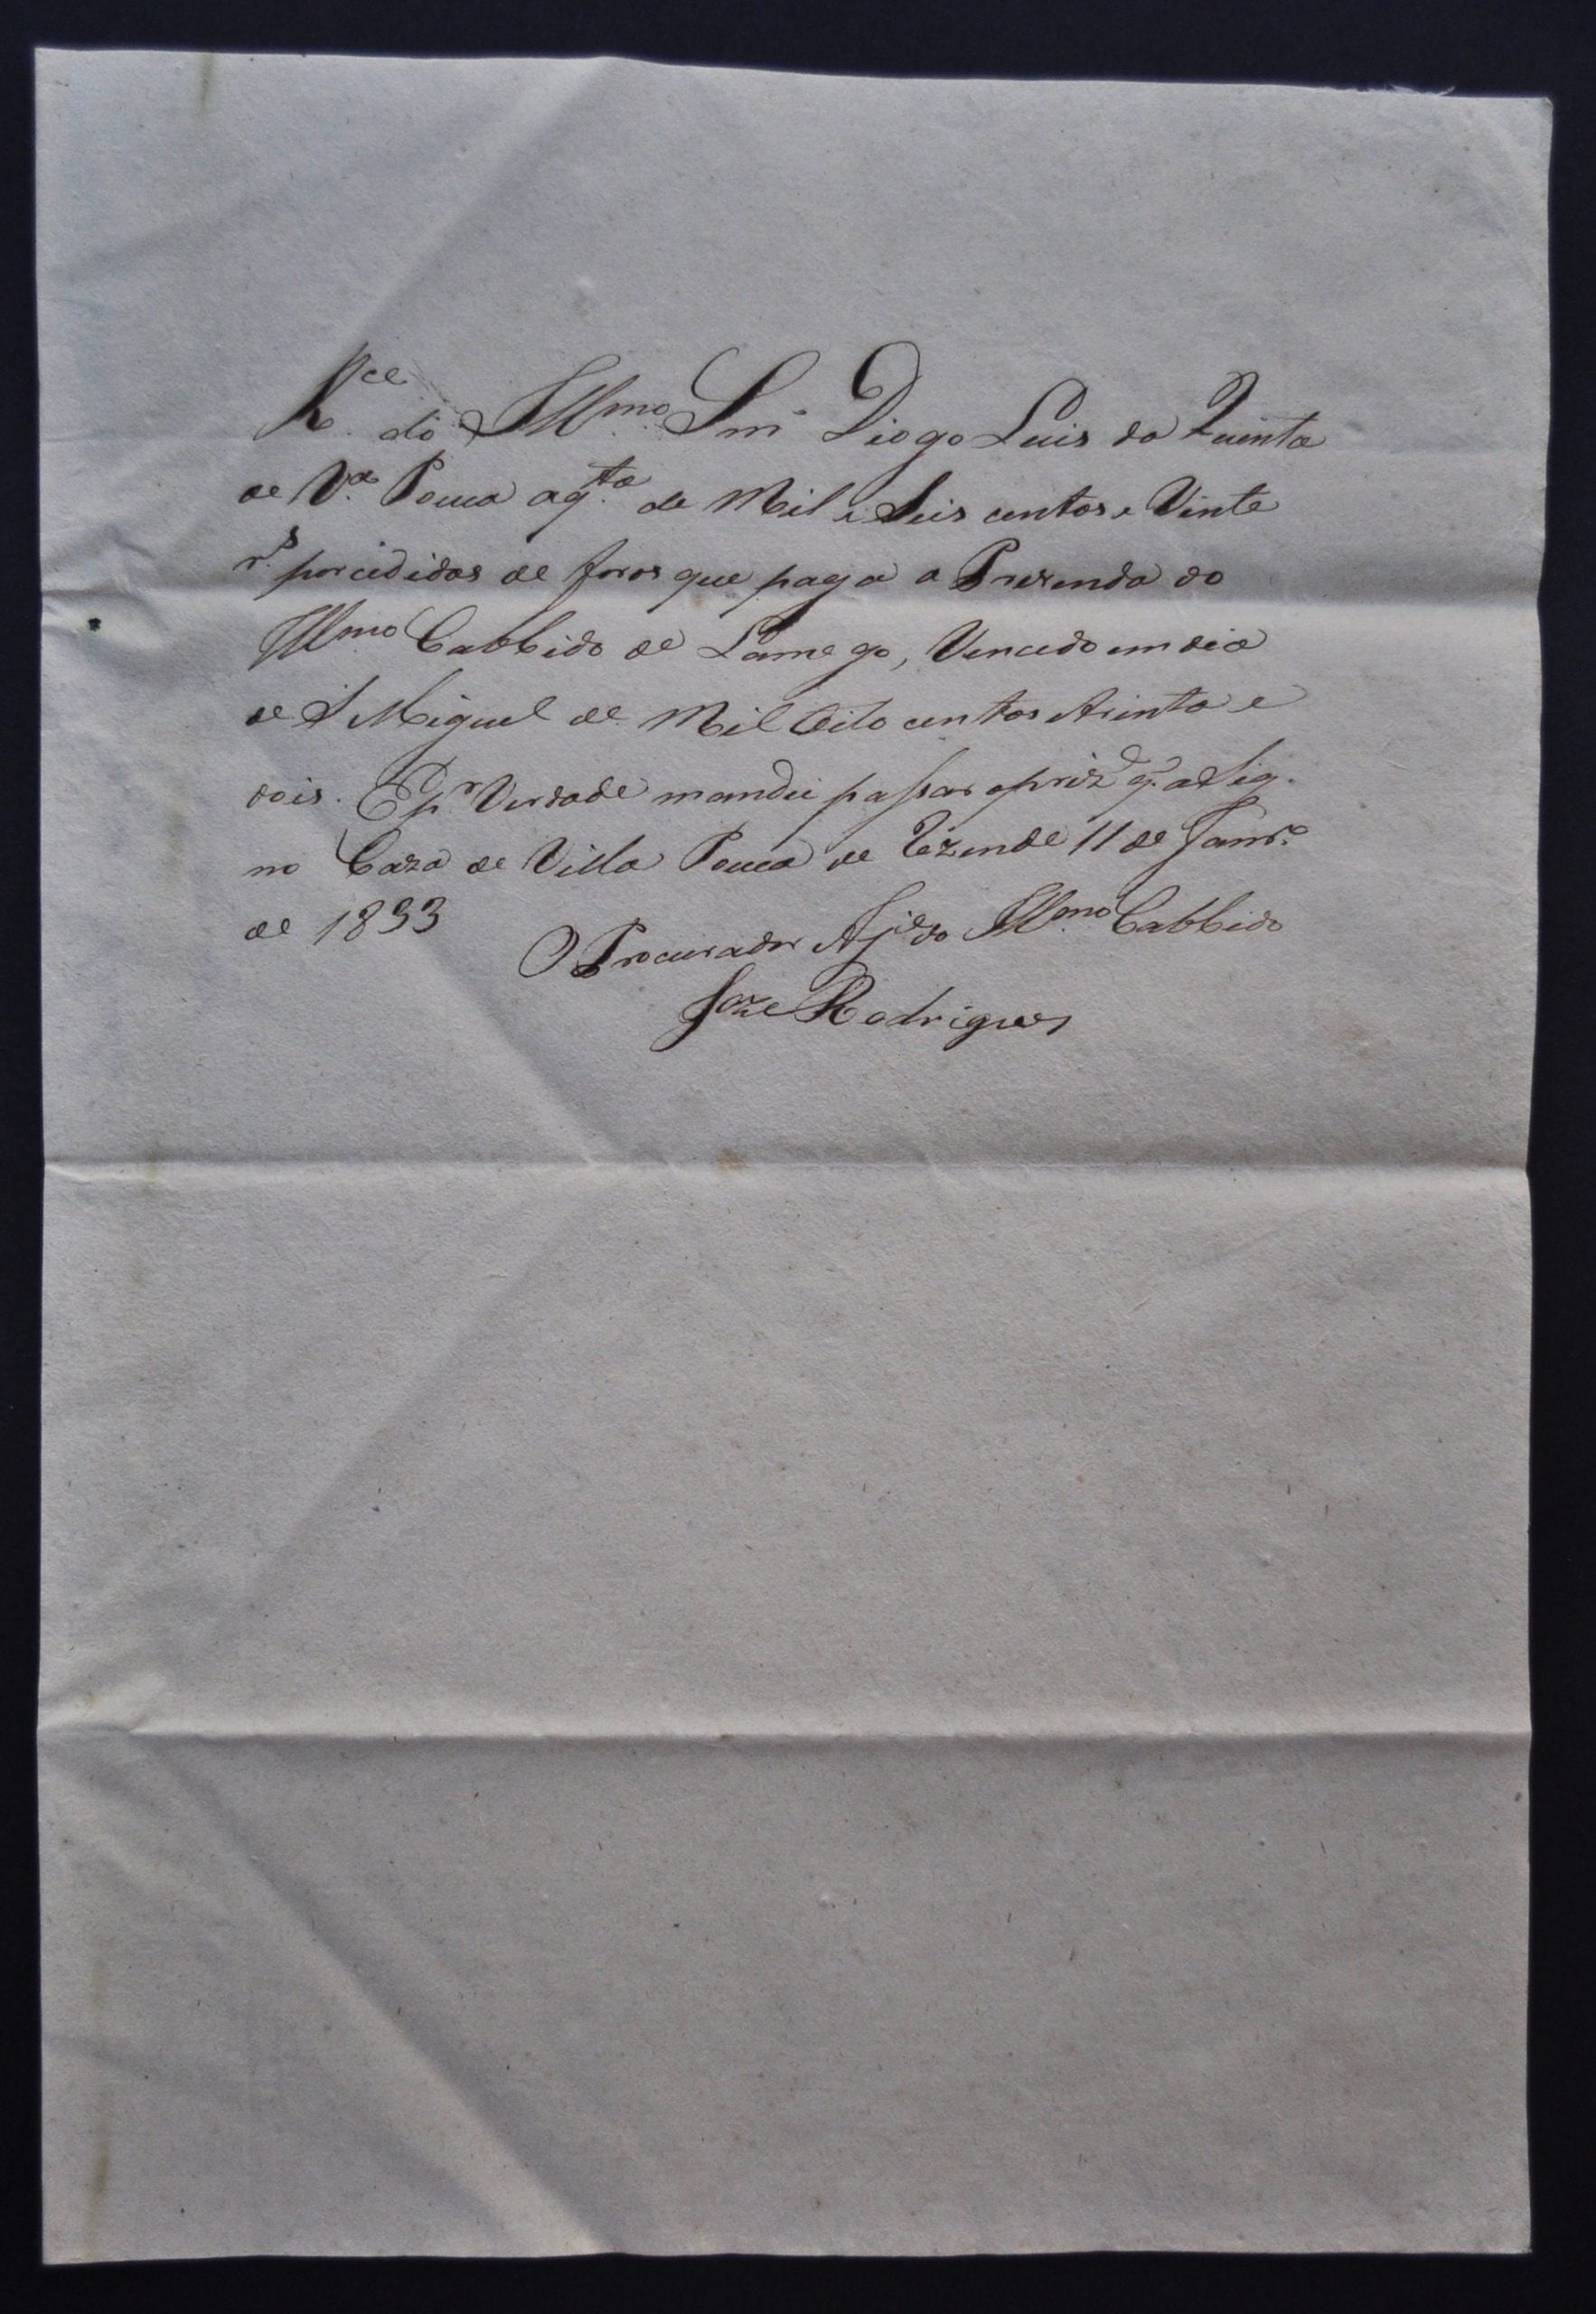 R.ce do Illmo Snr Diogo Luis da Quinta
de V.a Pouca aq.ta de Mil e Seis centos e Vinte
r.s porcedidos de foros que paga a Prezenda do
Illmo Cabbido de Lamego, Vencido em dia
de S Miguel de Mil Oito centos trinta e
dois. E p.r Verdade mandei passar o priz.e q. asig.
no Caza de Villa Pouca de Rezende 11 de Janr.o
de 1833
O Procurador do Illmo Cabbido
Joze Rodrigues